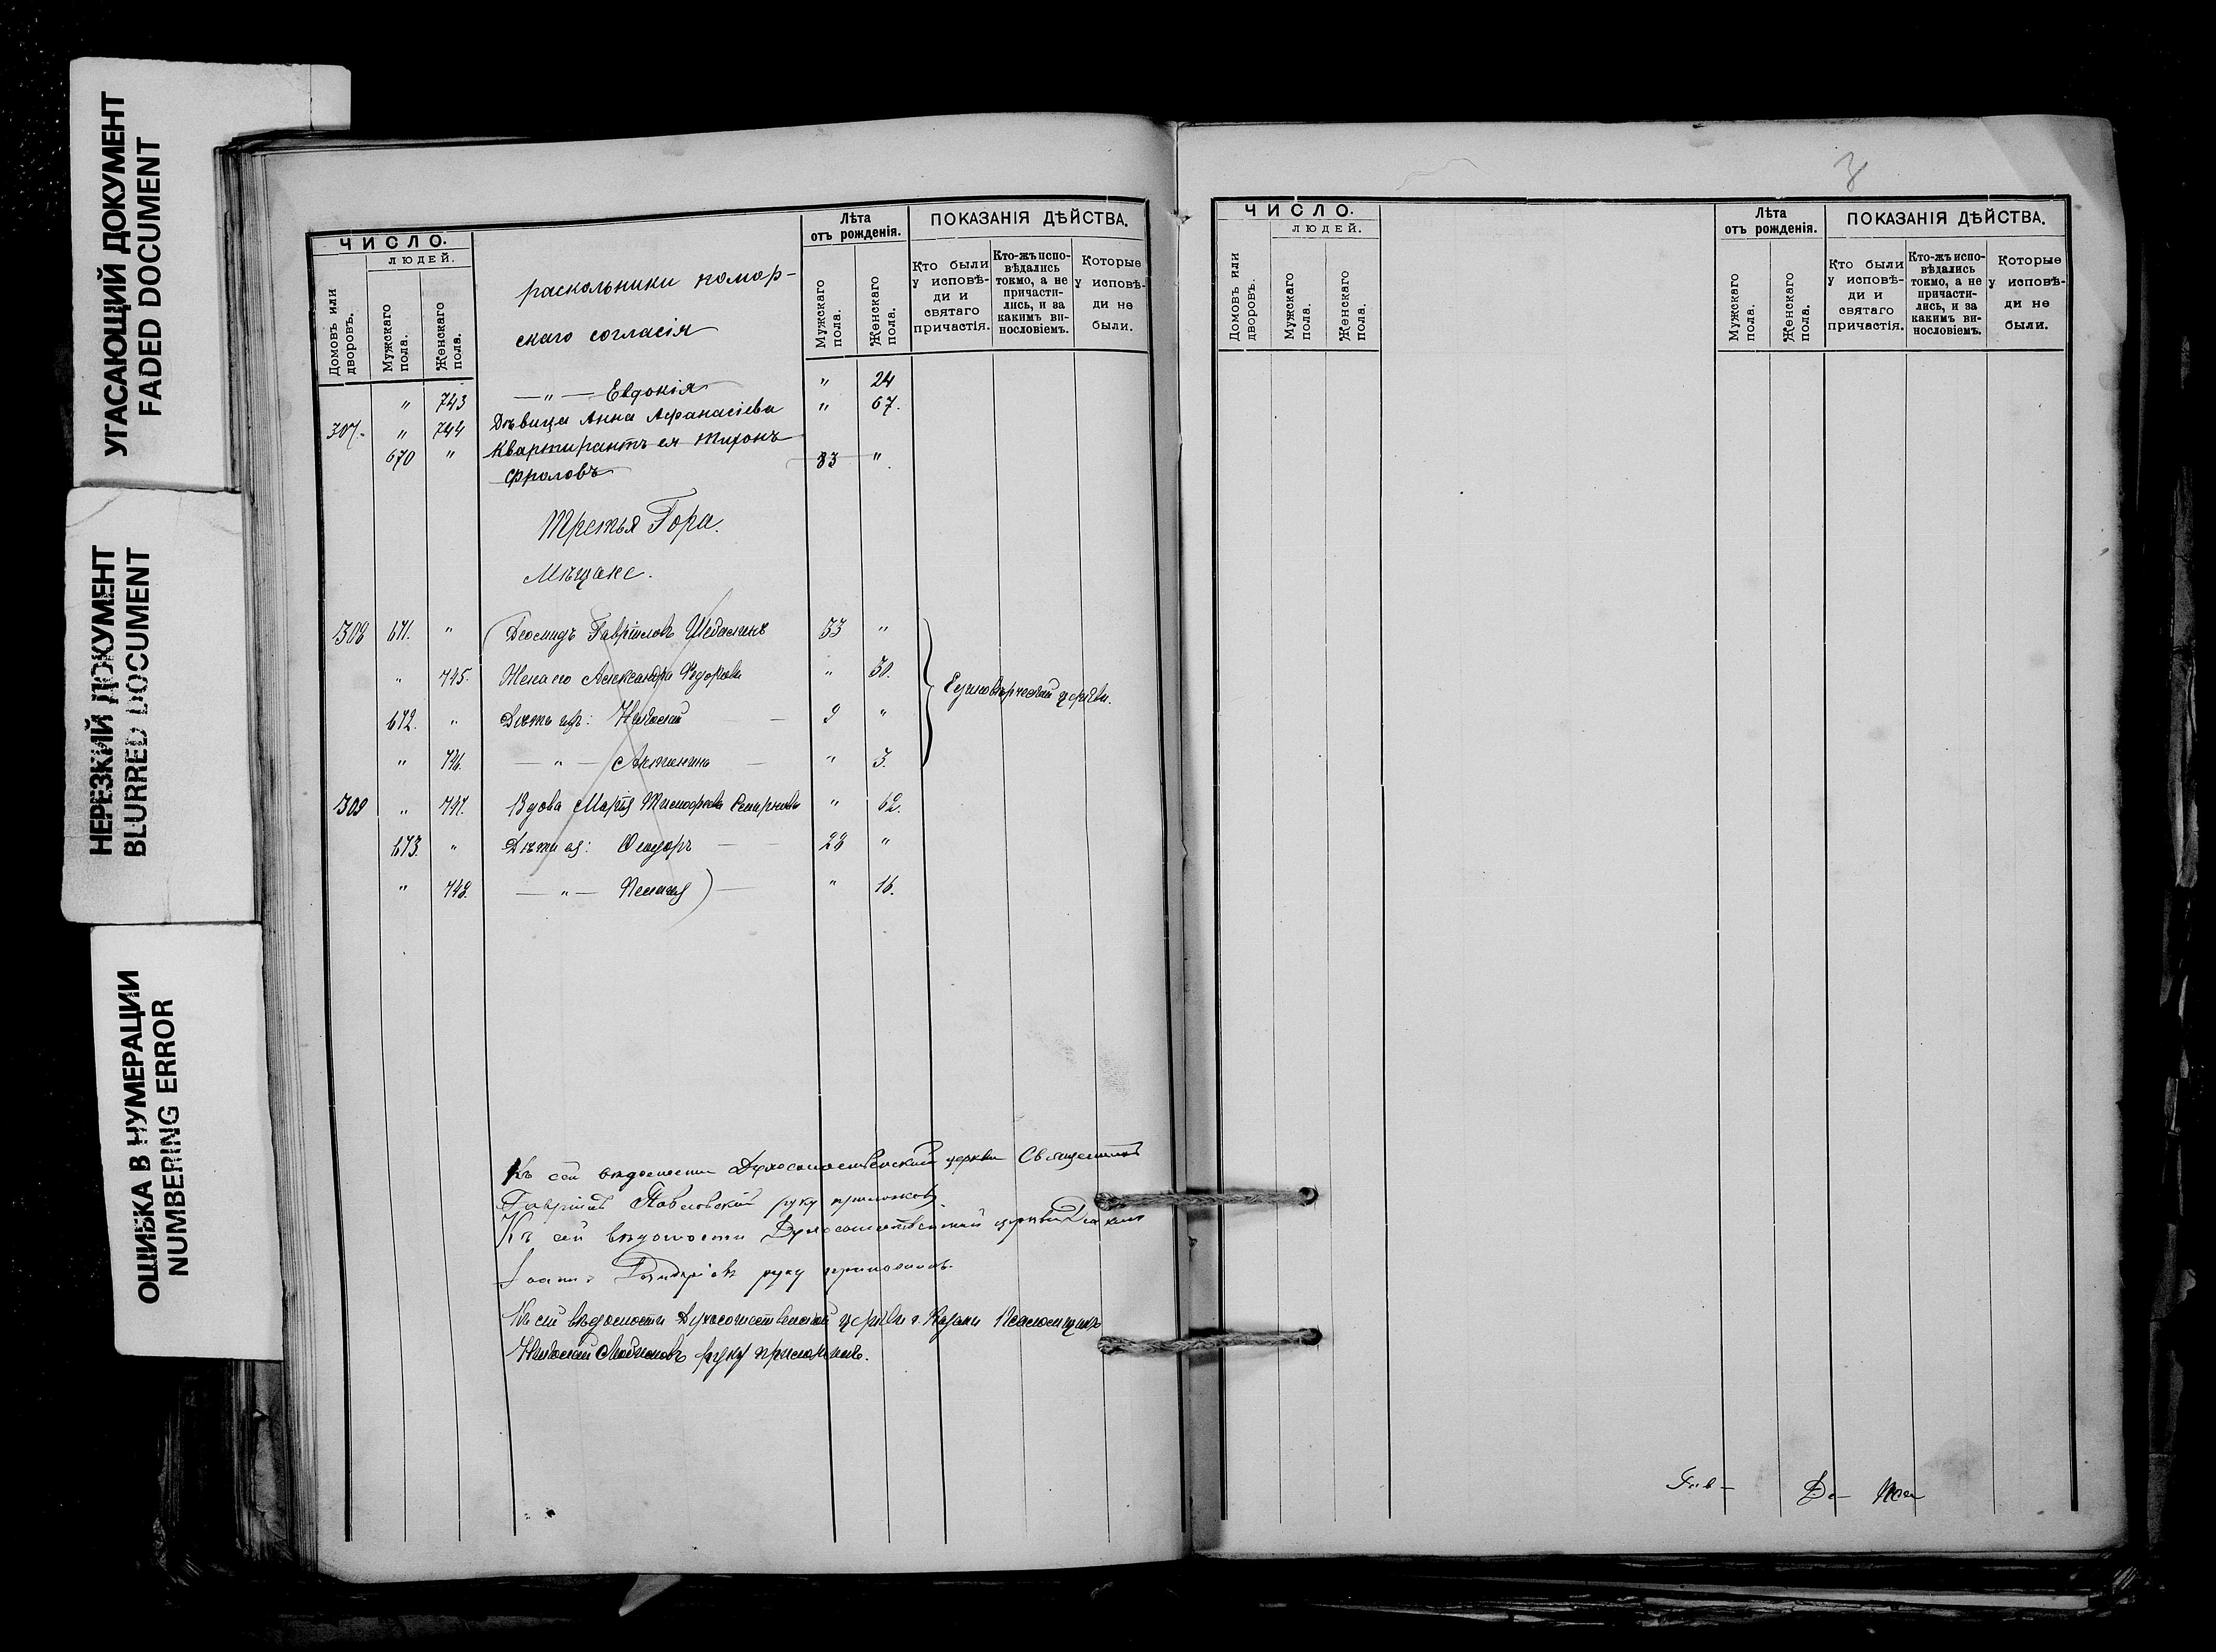 УГАСАЮЩИЙ ДОКУМЕНТ
FADED DOCUMENT
НЕРЕЗКИЙ ДОКУМЕНТ
BLURRED DOCUMENT
ОШИБКА В НУМЕРАЦИИ
NUMBERING ERROR
ЧИСЛО.
ЛЮДЕЙ.
Домовъ или дворовъ.
Мужскаго пола.
Женскаго пола.
раскольники помор-
скаго согласія
Лѣта
отъ рожденія.
Мужскаго пола.
Женскаго пола.
ПОКАЗАНІЯ ДѢЙСТВА.
Кто были у исповѣ-ди и святаго причастія.
Кто-жъ испо-вѣдались токмо, а не причасти-лись, и за какимъ ви-нословіемъ.
Которые у исповѣ-ди не были.
" 743 — " — Евдокія " 24
307. " 744 Дѣвица Анна Афанасіева " 67.
670 " Квартирантъ ея Тихонъ
Фроловъ 33 "
Третья Гора.
Мѣщане.
308 671. " Діомидъ Гавріиловъ 33 "
" 745. Жена его Александра Ѳедорова " 30.
Единовѣрческой церкви.
672. " Дѣти ихъ: Николай 9 "
" 746. — " — Антонина " 3.
309 " 747. Вдова Марія Тимофеева Смирнова " 62.
673. " Дѣти ея: Ѳеодоръ 28 "
" 748. — " — Пелагія " 16.
Къ сей вѣдомости Духосошественской церкви Священникъ
Гавріилъ Павловскій руку приложилъ.
Къ сей вѣдомости Духосошественской церкви Діаконъ
Іоаннъ руку приложилъ.
Къ сей вѣдомости Духосошественской церкви г. Казани Псаломщикъ
Николай руку приложилъ.
ЧИСЛО.
ЛЮДЕЙ.
Домовъ или дворовъ.
Мужскаго пола.
Женскаго пола.
Лѣта
отъ рожденія.
Мужскаго пола.
Женскаго пола.
ПОКАЗАНІЯ ДѢЙСТВА.
Кто были у исповѣ-ди и святаго причастія.
Кто-жъ испо-вѣдались токмо, а не причасти-лись, и за какимъ ви-нословіемъ.
Которые у исповѣ-ди не были.